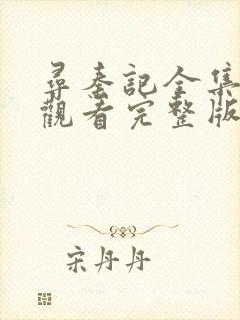 尋秦記全集
觀看完整版
宋丹丹